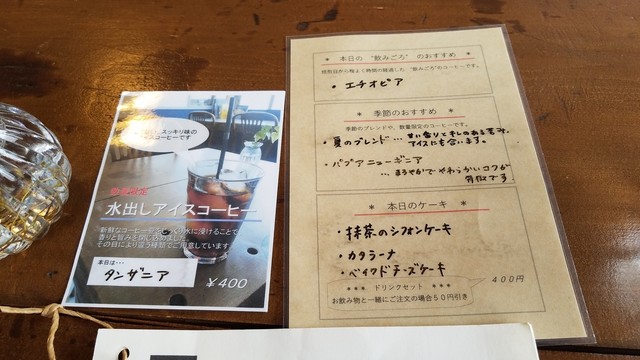 スッキリ味の
コーヒーです
数量限定
水出しアイスコーヒー
新鮮なコーヒー粉をじっくり水に浸けることで
香りと旨みを閉じ込めました
その日により違う種類でご用意しています
本日は…
タンザニア
￥400
本日の "飲みごろ" のおすすめ
焙煎日から程よく時間の経過した "飲みごろ"のコーヒーです。
・エチオピア
＊ 季節のおすすめ ＊
季節のブレンドや、数量限定のコーヒーです。
・夏のブレンド … 甘い香りとキレのある苦み。
アイスにも合います。
・パプアニューギニア
… まろやかでやわらかいコクが
特徴です
＊ 本日のケーキ ＊
・抹茶のシフォンケーキ
・カタラーナ
・ベイクドチーズケーキ
400円
＊＊＊ ドリンクセット ＊＊＊
お飲み物と一緒にご注文の場合５０円引き